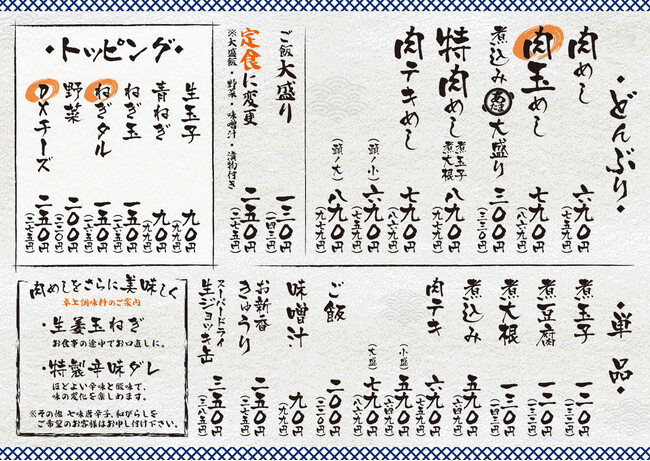 ・どんぶり・
肉めし
六九〇円
(七五九円)
肉玉めし
七九〇円
(八六九円)
煮込みあたま大盛り
三〇〇円
(三三〇円)
特肉めし
煮玉子
煮大根
八九〇円
(九七九円)
肉テキめし
七九〇円
(八六九円)
(頭ノ小)
六九〇円
(七五九円)
(頭ノ大)
八九〇円
(九七九円)
ご飯大盛り
一三〇円
(一四三円)
定食に変更
※大盛飯・野菜・味噌汁・漬物付き
二五〇円
(二七五円)
・トッピング・
生玉子
九〇円
(九九円)
青ねぎ
九〇円
(九九円)
ねぎ玉
一五〇円
(一六五円)
ねぎタル
一五〇円
(一六五円)
野菜
二〇〇円
(二二〇円)
DXチーズ
二五〇円
(二七五円)
・単品・
煮玉子
煮豆腐
煮大根
煮込み
五九〇円
(六四九円)
肉テキ
六九〇円
(七五九円)
(小盛)
五九〇円
(六四九円)
(大盛)
七九〇円
(八六九円)
ご飯
二〇〇円
(二二〇円)
味噌汁
九〇円
(九九円)
お新香
きゅうり
二五〇円
(二七五円)
スーパードライ
生ジョッキ缶
三五〇円
(三八五円)
肉めしをさらに美味しく
卓上調味料のご案内
・生姜玉ねぎ
お食事の途中でお口直しに。
・特製辛味ダレ
ほどよい辛味と酸味で、
味の変化を楽しめます。
※その他 七味唐辛子、和がらしを
ご希望のお客様はお申し付け下さい。